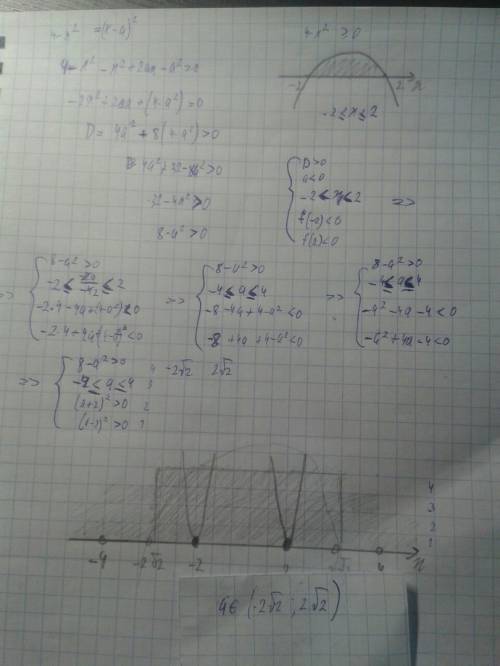 4-x² =(x-a)²
4-x² ≥0
4-x²-x²+2ax-a²=0
-2 2 x
-2x²+2ax+(4-a²)=0
-2≤x≤2
D= 4a²+8(4-a²)>0
D= 4a²+32-8a²>0
32-4a²>0
8-a²>0
D>0
a<0
-2≤x₀≤2 =>
f(-2)<0
f(2)<0
=> 8-a²>0
-2≤ -2a/-4 ≤2
-2·4-4a+(4-a²)<0
-2·4+4a+(4-a²)<0
=> 8-a²>0
-4≤a≤4
-8-4a+4-a²<0
-8+4a+4-a²<0
=> 8-a²>0
-4≤a≤4
-a²-4a-4<0
-a²+4a-4<0
=> 8-a²>0 4 -2√2 2√2
-4≤a≤4 3
(a+2)²>0 2
(a-2)²>0 1
4
3
2
1
-4 -2√2 -2 2√2 x
a∈(-2√2; 2√2)